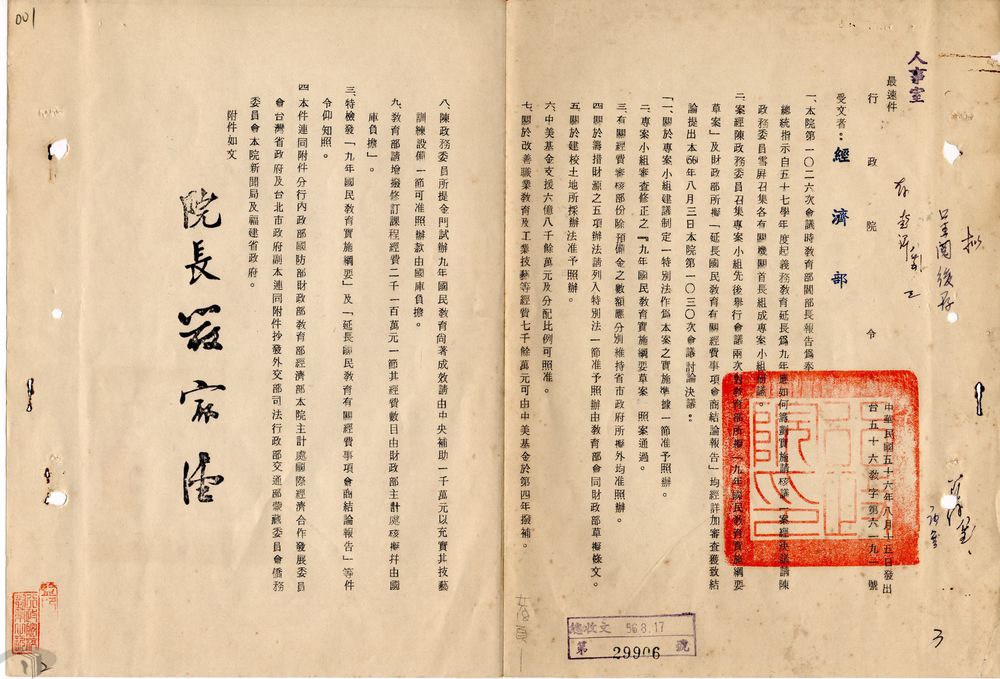 001
人事室
最速件
行政院令
中華民國五十六年八月十五日發出
台五十六教字第六一九二號
受文者：經濟部
一、本院第一〇二六次會議時教育部閻部長報告爲奉
總統指示自五十七學年度起義務教育延長爲九年應如何籌劃實施請核議一案經決議請陳
政務委員雪屏召集各有關機關首長組成專案小組研議。
二、案經陳政務委員召集專案小組先後舉行會議兩次對教育部所擬「九年國民教育實施綱要
草案」及財政部所擬「延長國民教育有關經費事項會商結論報告」均經詳加審查獲致結
論提出本(56)年八月三日本院第一〇三〇次會議討論決議：
「一、關於專案小組建議制定一特別法作爲本案之實施準據一節准予照辦。
二、專案小組審查修正之『九年國民教育實施綱要草案』照案通過。
三、有關經費審核部份除預備金之數額應分別維持省市政府所擬外均准照辦。
四、關於籌措財源之五項辦法請列入特別法一節准予照辦由教育部會同財政部草擬條文。
五、關於建校土地所採辦法准予照辦。
六、中美基金支援六億八千餘萬元及分配比例可照准。
七、關於改善職業教育及工業技藝等經費七千餘萬元可由中美基金於第四年撥補。
八、陳政務委員所提金門試辦九年國民教育尚著成效請由中央補助一千萬元以充實其技藝
訓練設備一節可准照辦款由國庫負擔。
九、教育部請增撥修訂課程經費二千一百萬元一節其經費數目由財政部主計處核擬幷由國
庫負擔」。
三、特檢發「九年國民教育實施綱要」及「延長國民教育有關經費事項會商結論報告」等件
令仰知照。
四、本件連同附件分行內政部國防部財政部教育部經濟部本院主計處國際經濟合作發展委員
會台灣省政府及台北市政府副本連同附件抄發外交部司法行政部交通部蒙藏委員會僑務
委員會本院新聞局及福建省政府。
附件如文
院長嚴家淦
總收文 56.8.17
第 29906 號
3
2